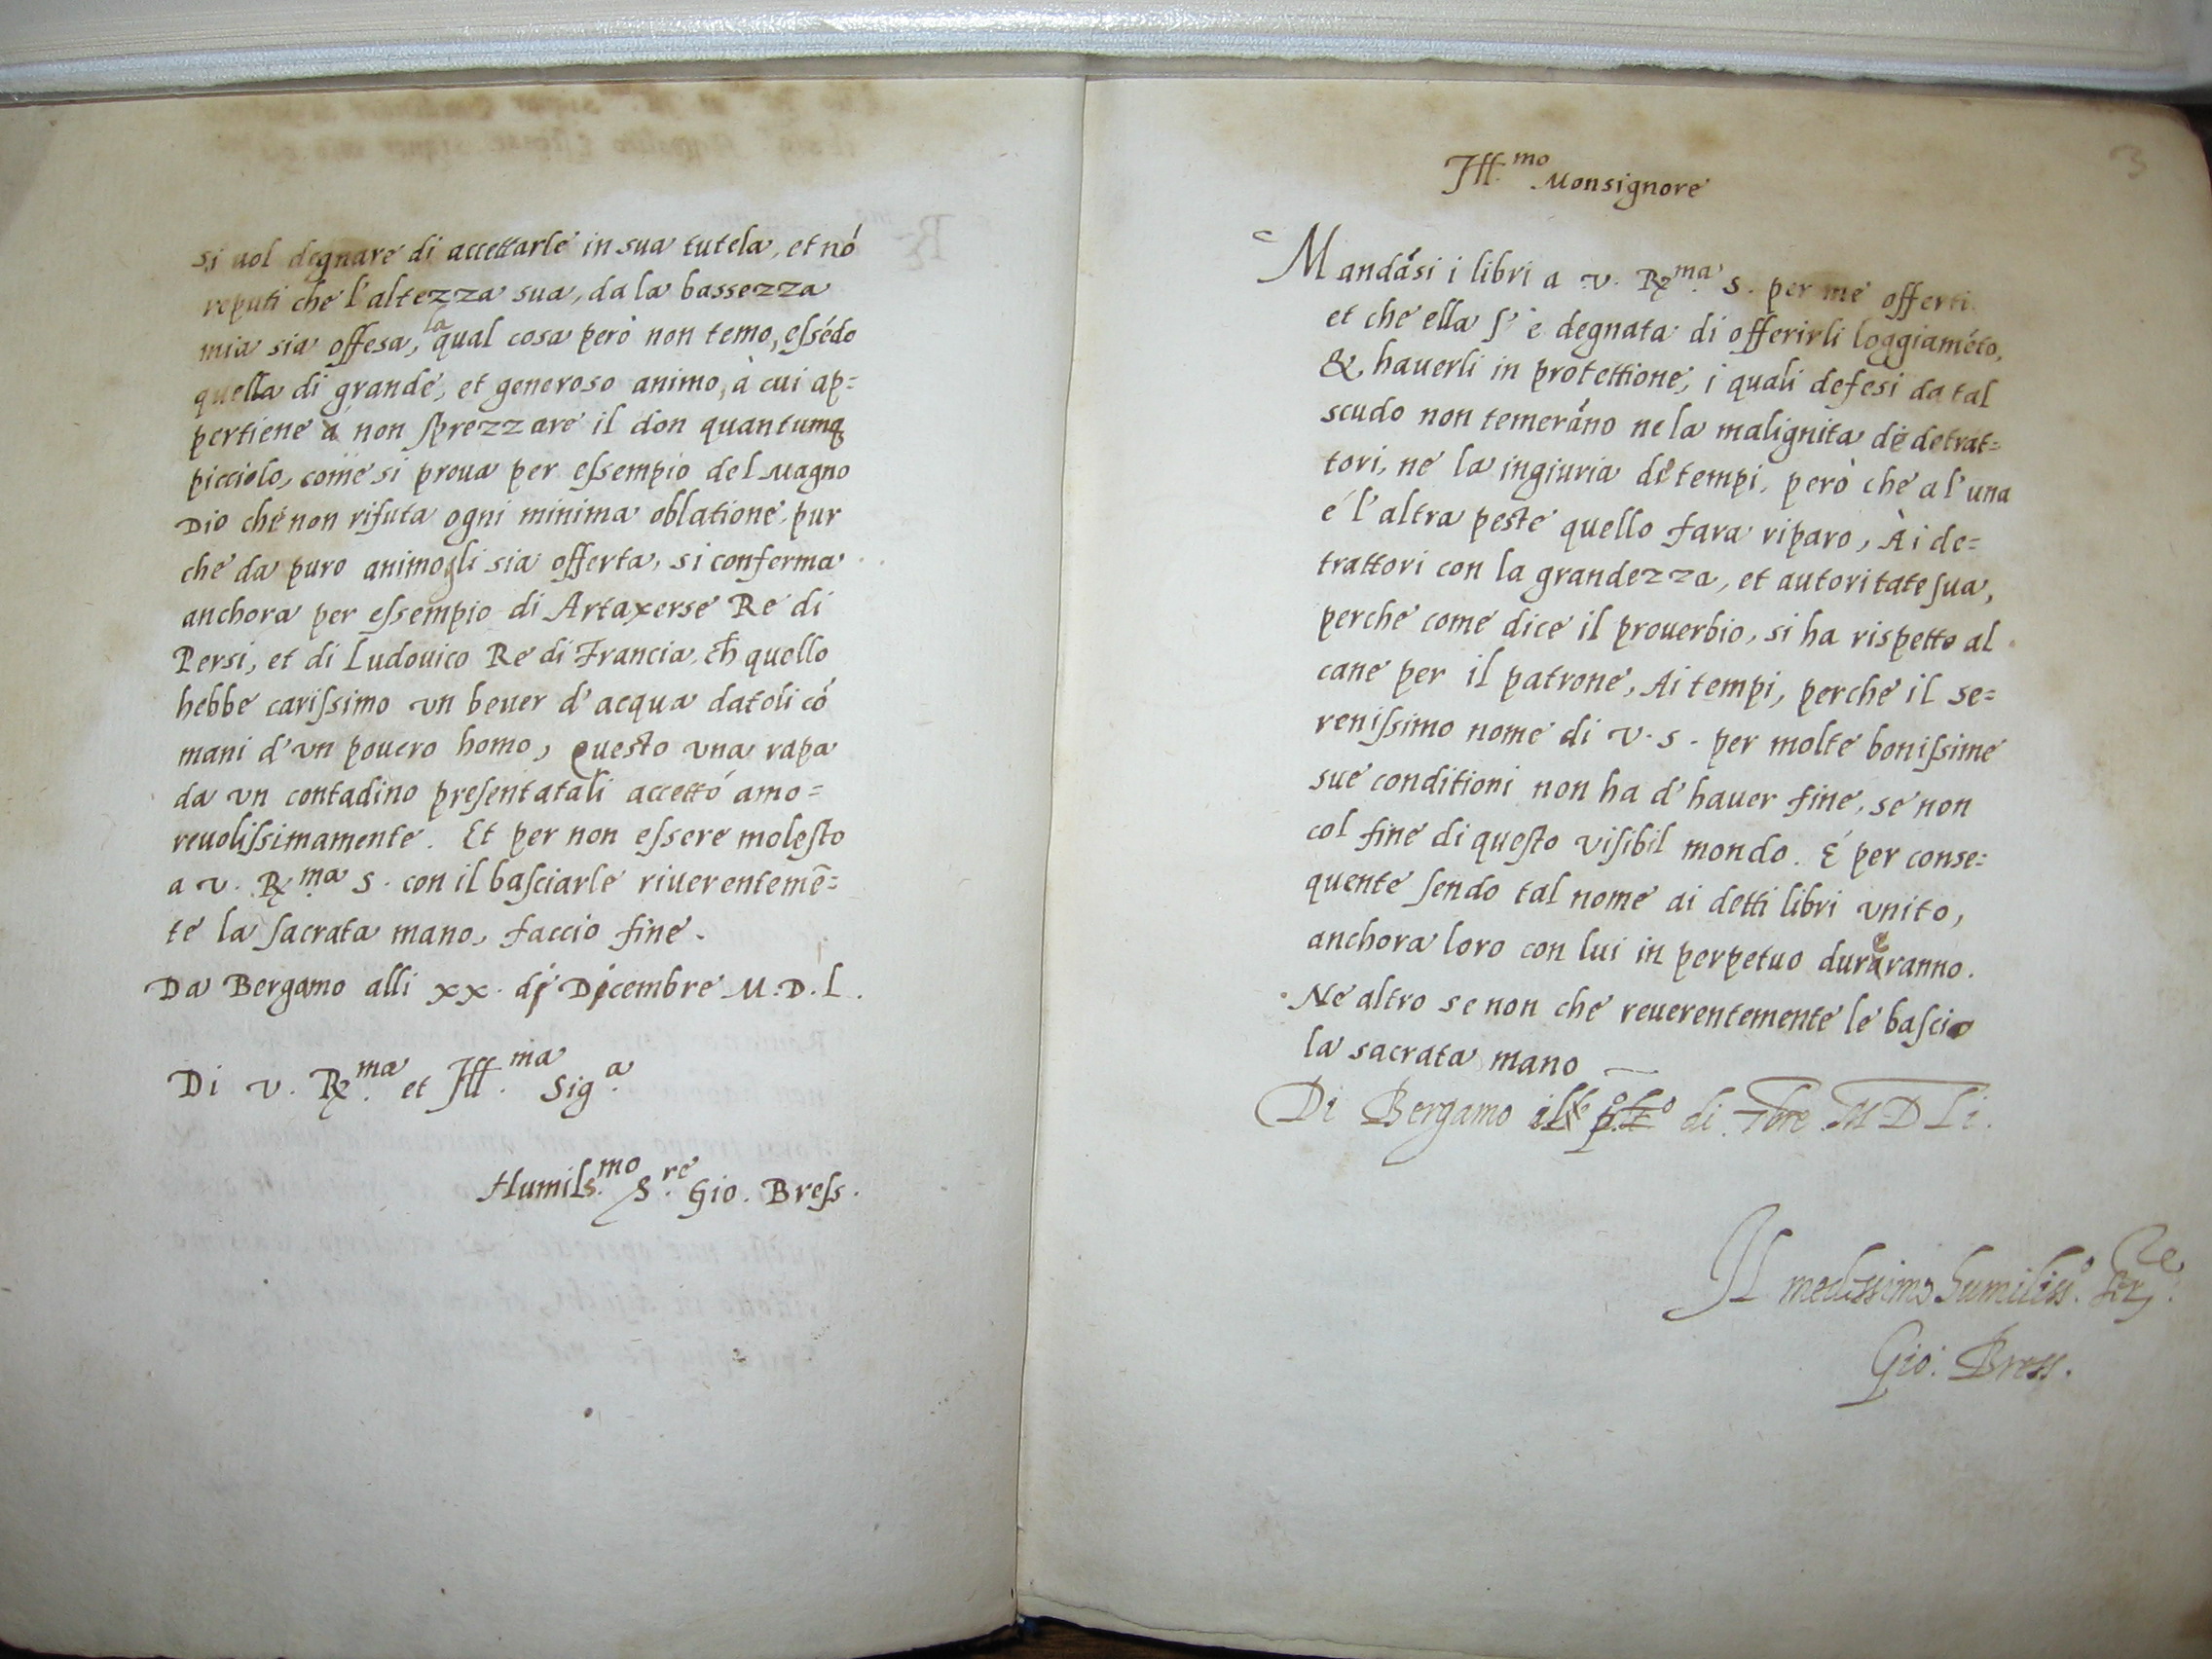 si uol degnare di accettarle in sua tutela, et nó
reputi che l'altezza sua, da la bassezza
mia sia offesa, la qual cosa però non temo, essédo
quella di grande, et generoso animo, à cui ap=
pertiene à non sprezzare il don quantumq
picciolo, come si proua per essempio del Magno
Dio che non rifuta ogni minima oblatione, pur
che da puro animo gli sia offerta, si conferma
anchora per essempio di Artaxerse Re di
Persi, et di Ludouico Re di Francia, ch quello
hebbe carissimo vn beuer d'acqua datoli có
mani d'vn pouero homo, Questo vna rapa
da vn contadino presentatali accettó amo=
reuolissimamente. Et per non essere molesto
a V. Rma S. con il basciarle riuerentemē=
te la sacrata mano, faccio fine.
Da Bergamo alli xx. di Dicembre M.D.L.
Di V. R.ma et Ill.ma Sig.a
Humils.mo S.re Gio. Bress.
3
Ill.mo Monsignore
Mandási i libri a V. R.ma S. per me offerti
et che ella s'è degnata di offerirli loggiaméto,
& hauerli in protettione, i quali defesi da tal
scudo non temeráno ne la malignita de detrat=
tori, ne la ingiuria de tempi, però che a l'una
é l'altra peste quello fara riparo, Ài de=
trattori con la grandezza, et autoritate sua,
perche come dice il prouerbio, si ha rispetto al
cane per il patrone, Ai tempi, perche il se=
renissimo nome di V.S. per molte bonissime
sue conditioni non ha d'hauer fine, se non
col fine di questo visibil mondo. É per conse=
quente sendo tal nome ai detti libri vnito,
anchora loro con lui in perpetuo dureranno.
Ne altro se non che reuerentemente le bascio
la sacrata mano
Di Bergamo il di 7bre MDLi.
Il medessimo humiliss.o Ser.re
Gio: Bress.